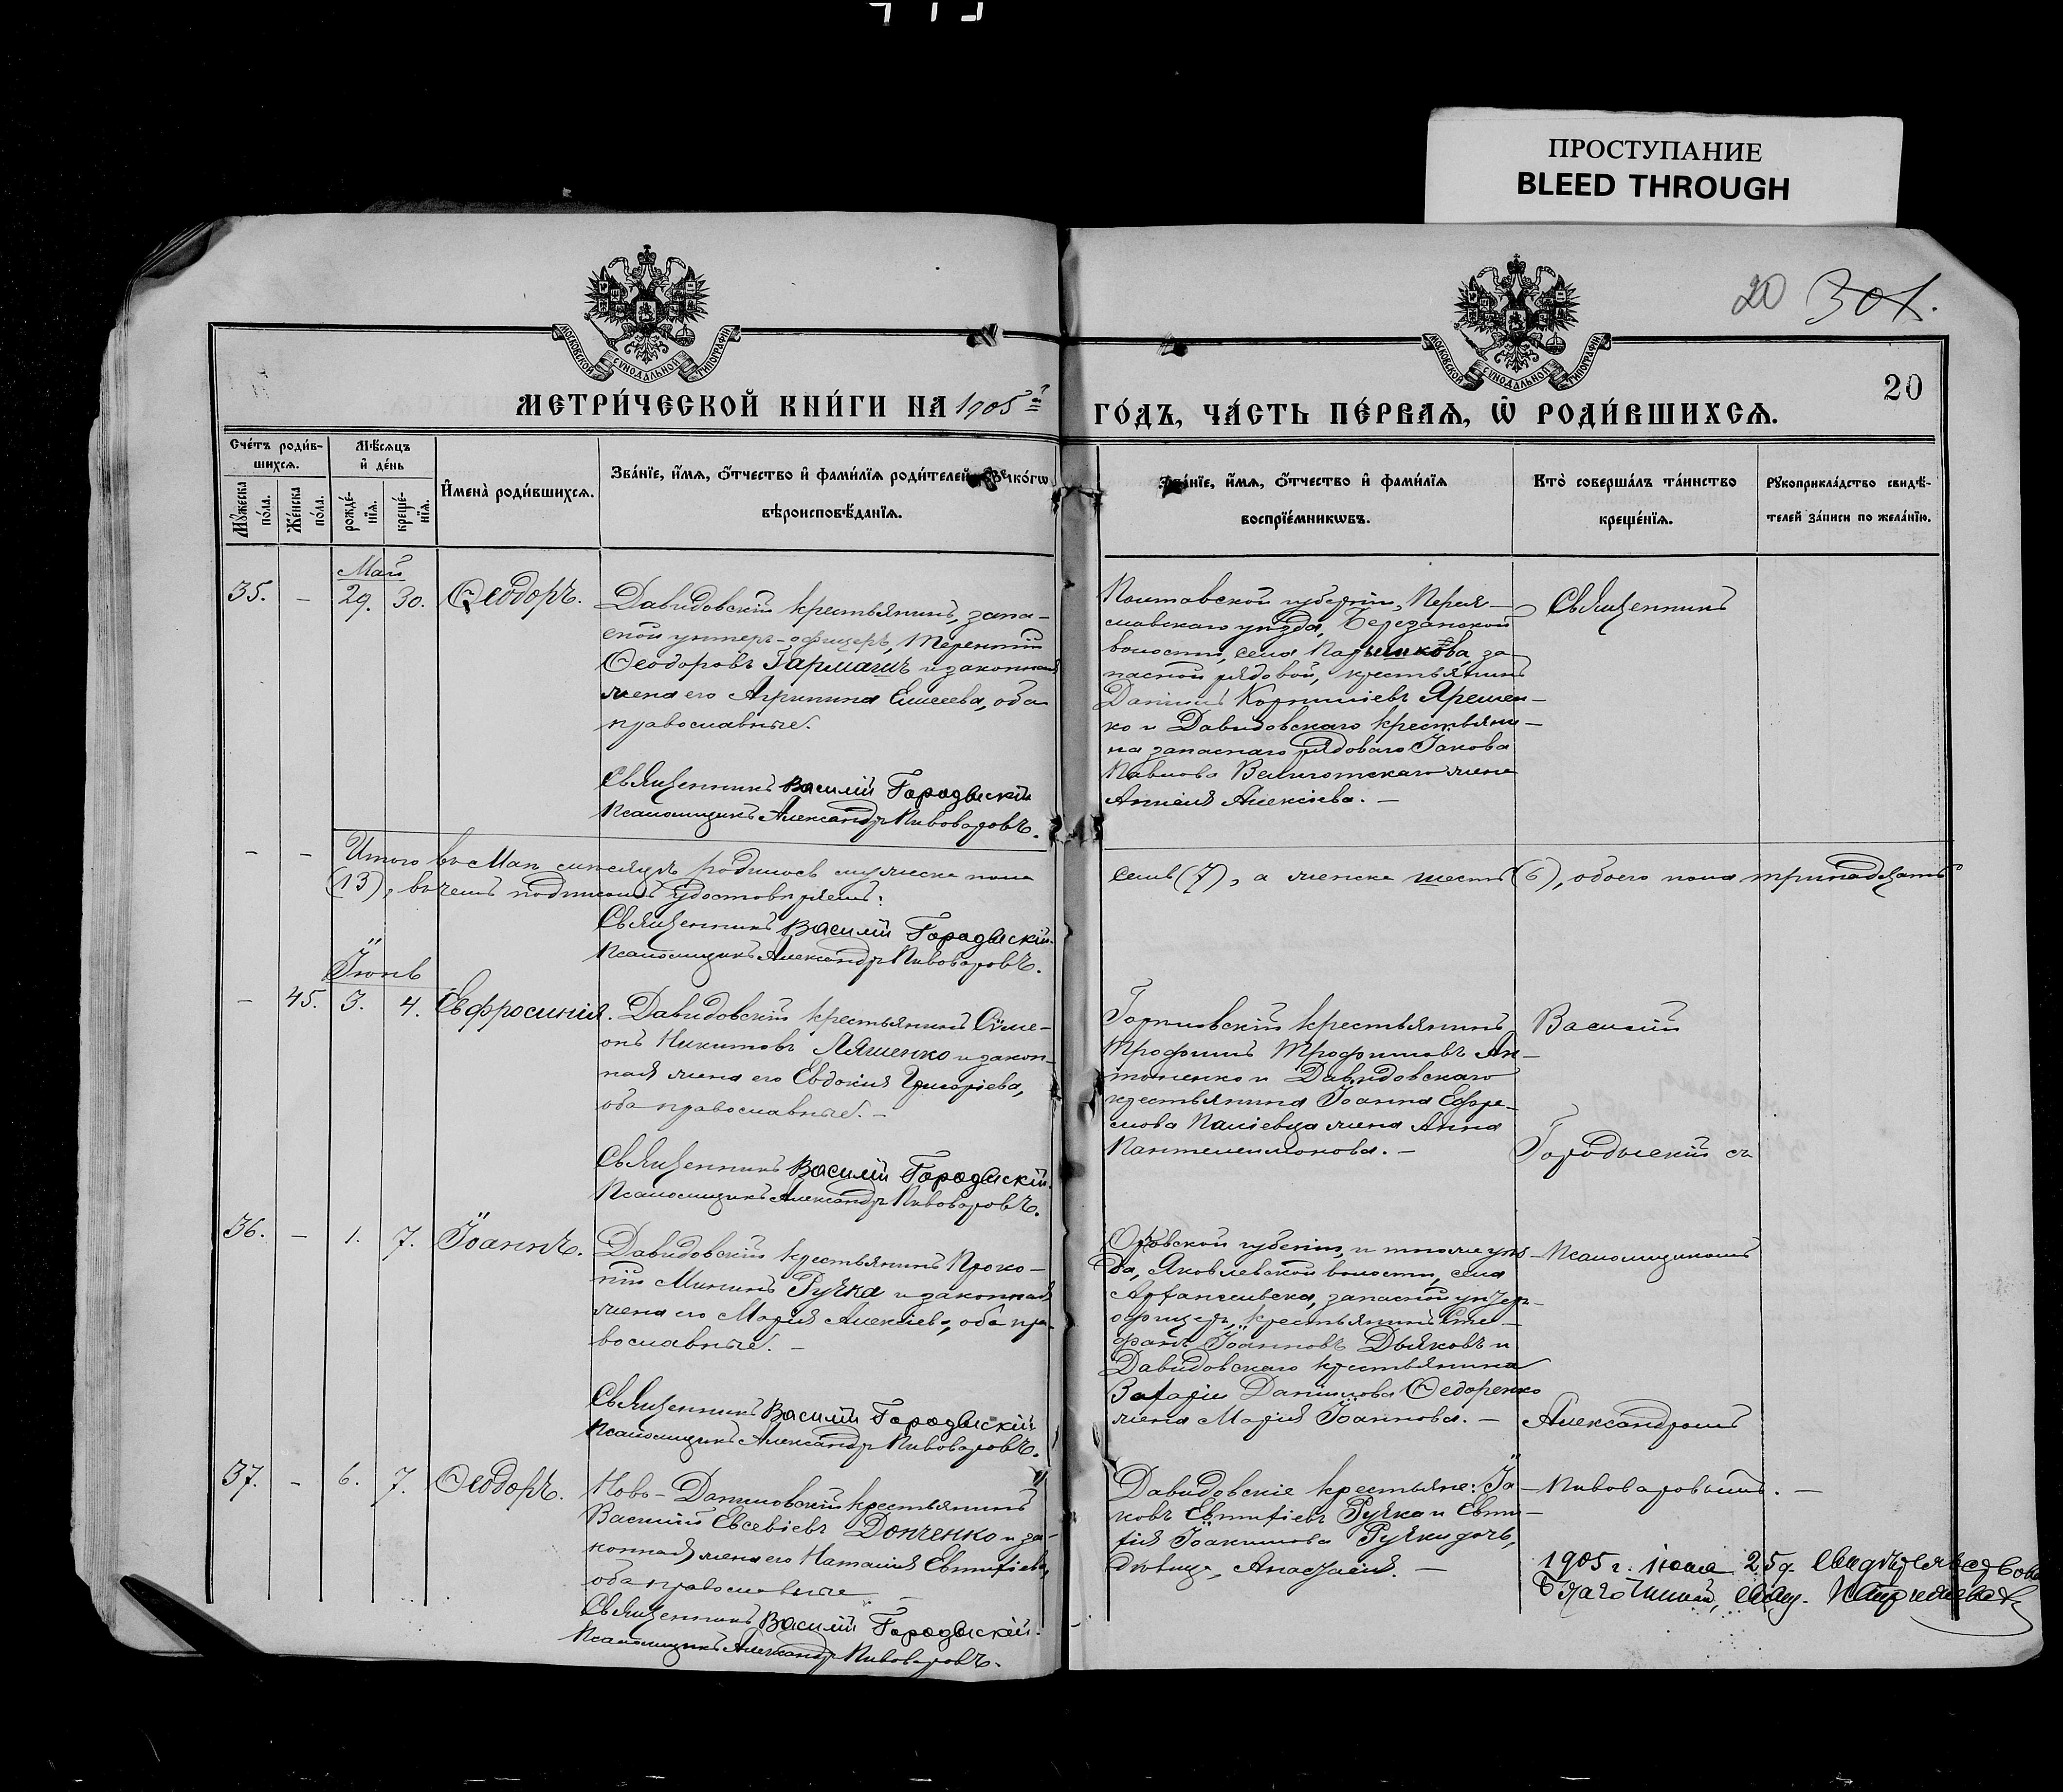 ПРОСТУПАНИЕ
BLEED THROUGH
20 301.
МОСКОВСКОЙ СѴНОДАЛЬНОЙ ТИПОГРАФІИ
МОСКОВСКОЙ СѴНОДАЛЬНОЙ ТИПОГРАФІИ
20
МЕТРИ́ЧЕСКОЙ КНИ́ГИ НА 1905й
ГО́ДЪ, ЧА́СТЬ ПЕ́РВАѦ, Ѡ҆ РОДИ́ВШИХСѦ.
Сче́тъ роди́в-
шихсѧ.
Мꙋ́жеска по́ла.
Же́нска по́ла.
Мѣ́сѧцъ
и҆ де́нь
рожде́-нїѧ.
креще́-нїѧ.
И҆мена̀ роди́вшихсѧ.
Зва́нїе, и҆́мѧ, ѻ҆́тчество и҆ фами́лїѧ роди́телей,
вѣроисповѣ́данїѧ.
Зва́нїе, и҆́мѧ, ѻ҆́тчество и҆ фами́лїѧ
воспрїе́мникѡвъ.
Кто̀ соверша́лъ та́инство
креще́нїѧ.
Рꙋкоприкла́дство свидѣ́-
телей за́писи по жела́нїю.
Май
35. - 29. 30. Ѳеодоръ.
Давидовскій крестьянинъ, запа-
сной унтеръ-офицеръ, Терентій
Ѳеодоровъ Гармашъ и законная
жена его Агрипина Елисеева, оба
православные.
Священникъ Василій Городыскій
Псаломщикъ Александръ Пивоваровъ.
Полтавской губерніи, Перея-
славскаго уѣзда, Березанской
волости, села за
пасной рядовой, крестьянинъ
Даніилъ Корниліевъ Яремен-
ко и Давидовскаго крестьяни-
на запаснаго рядоваго Іакова
Павлова жена
Алексіева. -
Священникъ
- - Итого въ Маѣ мѣсяцѣ родилось мужеска пола
семь (7), а женска шесть (6), обоего пола тринадцать
(13), въ чемъ подписомъ удостовѣряемъ:
Священникъ Василій Городыскій.
Псаломщикъ Александръ Пивоваровъ.
Іюнь
- 45. 3. 4. Евфросинія.
Давидовскій крестьянинъ Сѵме-
онъ Никитовъ Ляшенко и закон-
ная жена его Евдокія Григоріева,
оба православные. -
Священникъ Василій Городыскій.
Псаломщикъ Александръ Пивоваровъ.
крестьянинъ
Трофимъ Трофимовъ Ан-
тоненко и Давидовскаго
крестьянина Іоанна Ефре-
мова Паліевца жена Анна
Пантелеимонова. -
Василій
Городыскій съ
36. - 1. 7. Іоаннъ.
Давидовскій крестьянинъ Проко-
пій Мининъ Ручка и законная
жена его Марія Алексіева, оба пра-
вославные. -
Священникъ Василій Городыскій
Псаломщикъ Александръ Пивоваровъ.
Орловской губерніи, и тогоже уѣз-
да, Яковлевской волости, села
Архангельска, запасной унтер-
офицеръ, крестьянинъ Сте-
фанъ Іоанновъ Дьяковъ и
Давидовскаго крестьянина
Захаріи Даніилова Ѳедоренко
жена Марія Іоаннова. -
Псаломщикомъ
Александромъ
37. - 6. 7. Ѳеодоръ.
Ново-Даниловскій крестьянинъ
Василій Евсевіевъ Донченко и за-
конная жена его Наталія Евтихіева,
оба православные
Священникъ Василій Городыскій.
Псаломщикъ Александръ Пивоваровъ.
Давидовскіе крестьяне: Іа-
ковъ Евтихіевъ Ручка и Евти-
хія Іоакимова Ручки дочь,
дѣвица, Анастасія. -
Пивоваровымъ. -
1905 г. 25 д. Свидѣтельствовалъ
Благочинный, свящ.